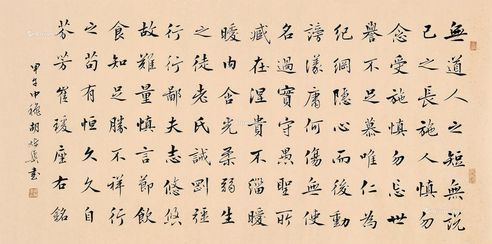 無道人之短無說
己之長施人慎勿
念受施慎勿忘世
譽不足慕唯仁為
紀綱隱心而後動
謗議庸何傷無使
名過實守愚聖所
臧在涅貴不緇曖
曖內含光柔弱生
之徒老氏誡剛強
行行鄙夫志悠悠
故難量慎言節飲
食知足勝不祥行
之苟有恒久久自
芬芳崔瑗座右銘
甲午中穐胡書